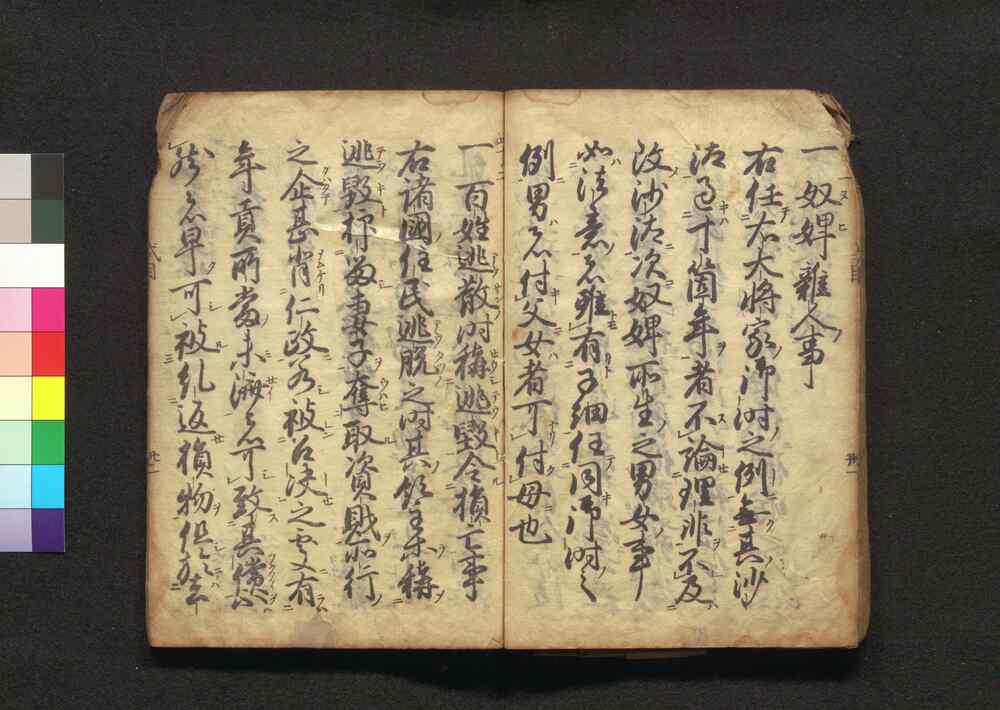 一奴婢雜人事
右任右大將家御時之例無其沙
汰過十箇年者不論理非不及
改沙汰次奴婢所生之男女事
如法意者雖有子細任同御時之
例男者付父女者可付母也
一百姓逃散時稱逃毀令損亡事
右諸國住民逃脱之時其領主等稱
逃毀抑留妻子奪取資財所行
之企甚背仁政若被召决之處有
年貢所當未濟者可致其償
然者早可被糺返損物但於去